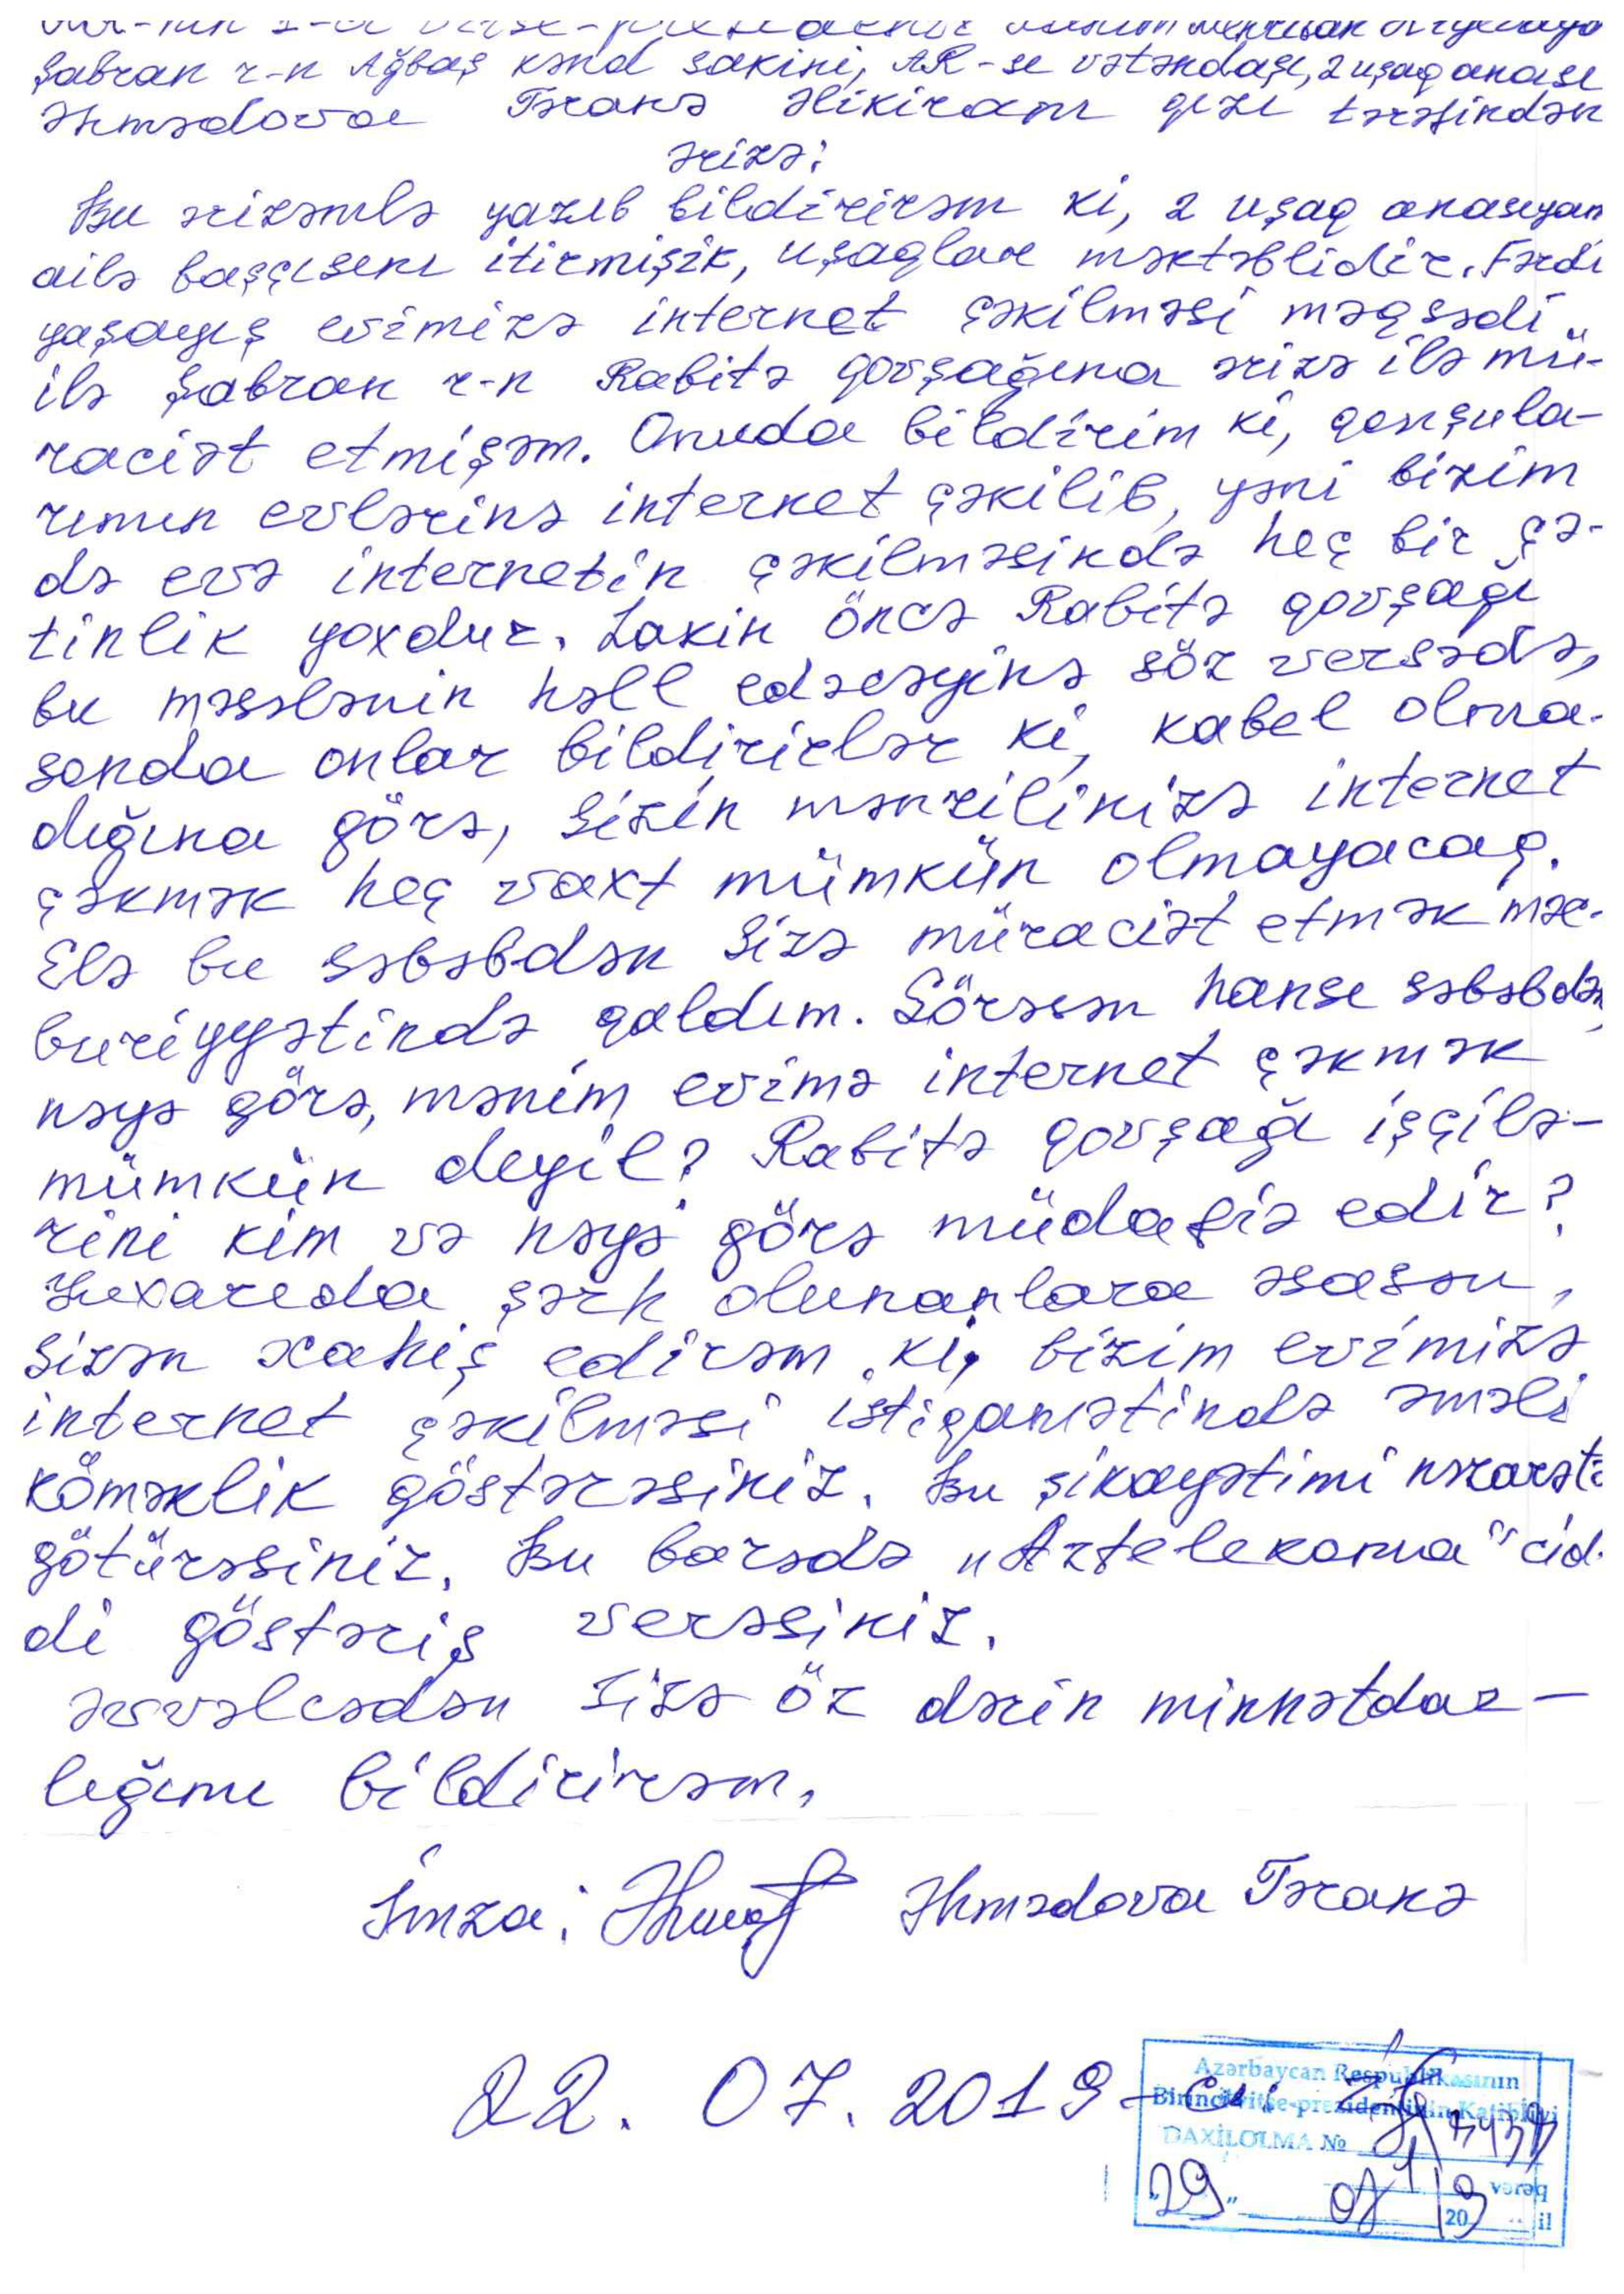 Şabran r-n Ağbaş kənd sakini, AR-sı vətəndaşı, 2 uşaq anası
Əhmədova Təranə Əlikiram qızı tərəfindən
Ərizə:
Bu ərizəmlə yazıb bildirirəm ki, 2 uşaq anasıyam
ailə başçısını itirmişik, uşaqlar məktəblidir. Fərdi
yaşayış evimizə internet çəkilməsi məqsədi
ilə Şabran r-n Rabitə qovşağına ərizə ilə mü-
raciət etmişəm. Onuda bildirim ki, qonşula-
rımın evlərinə internet çəkilib, yəni bizim
də evə internetin çəkilməsində heç bir çə-
tinlik yoxdur. Lakin öncə Rabitə qovşağı
bu məsələnin həll edəcəyinə söz versədə,
sonda onlar bildirirlər ki, kabel olma-
dığına görə, Sizin mənzilinizə internet
çəkmək heç vaxt mümkün olmayacaq.
Elə bu səbəbdən Sizə müraciət etmək məc-
buriyyətində qaldım. Görəsən hansı səbəbdən,
nəyə görə, mənim evimə internet çəkmək
mümkün deyil? Rabitə qovşağı işçilə-
rini kim və nəyə görə müdafiə edir?
Yuxarıda şərh olunanlara əsasən,
Sizən xahiş edirəm ki, bizim evimizə
internet çəkilməsi istiqamətində əməli
köməklik göstərəsiniz. Bu şikayətimi nəzarətə
götürəsiniz. Bu barədə „Aztelekoma" cid-
di göstəriş verəsiniz.
Əvvəlcədən Sizə öz dərin minnətdar-
lığımı bildirirəm.
İmza: Əhmədova Təranə
22. 07. 2019-cu il
Azərbaycan Respublikasının
Birinci vitse-prezidentinin Katibliyi
DAXİLOLMA №
vərəq
„29" 07 2019 il